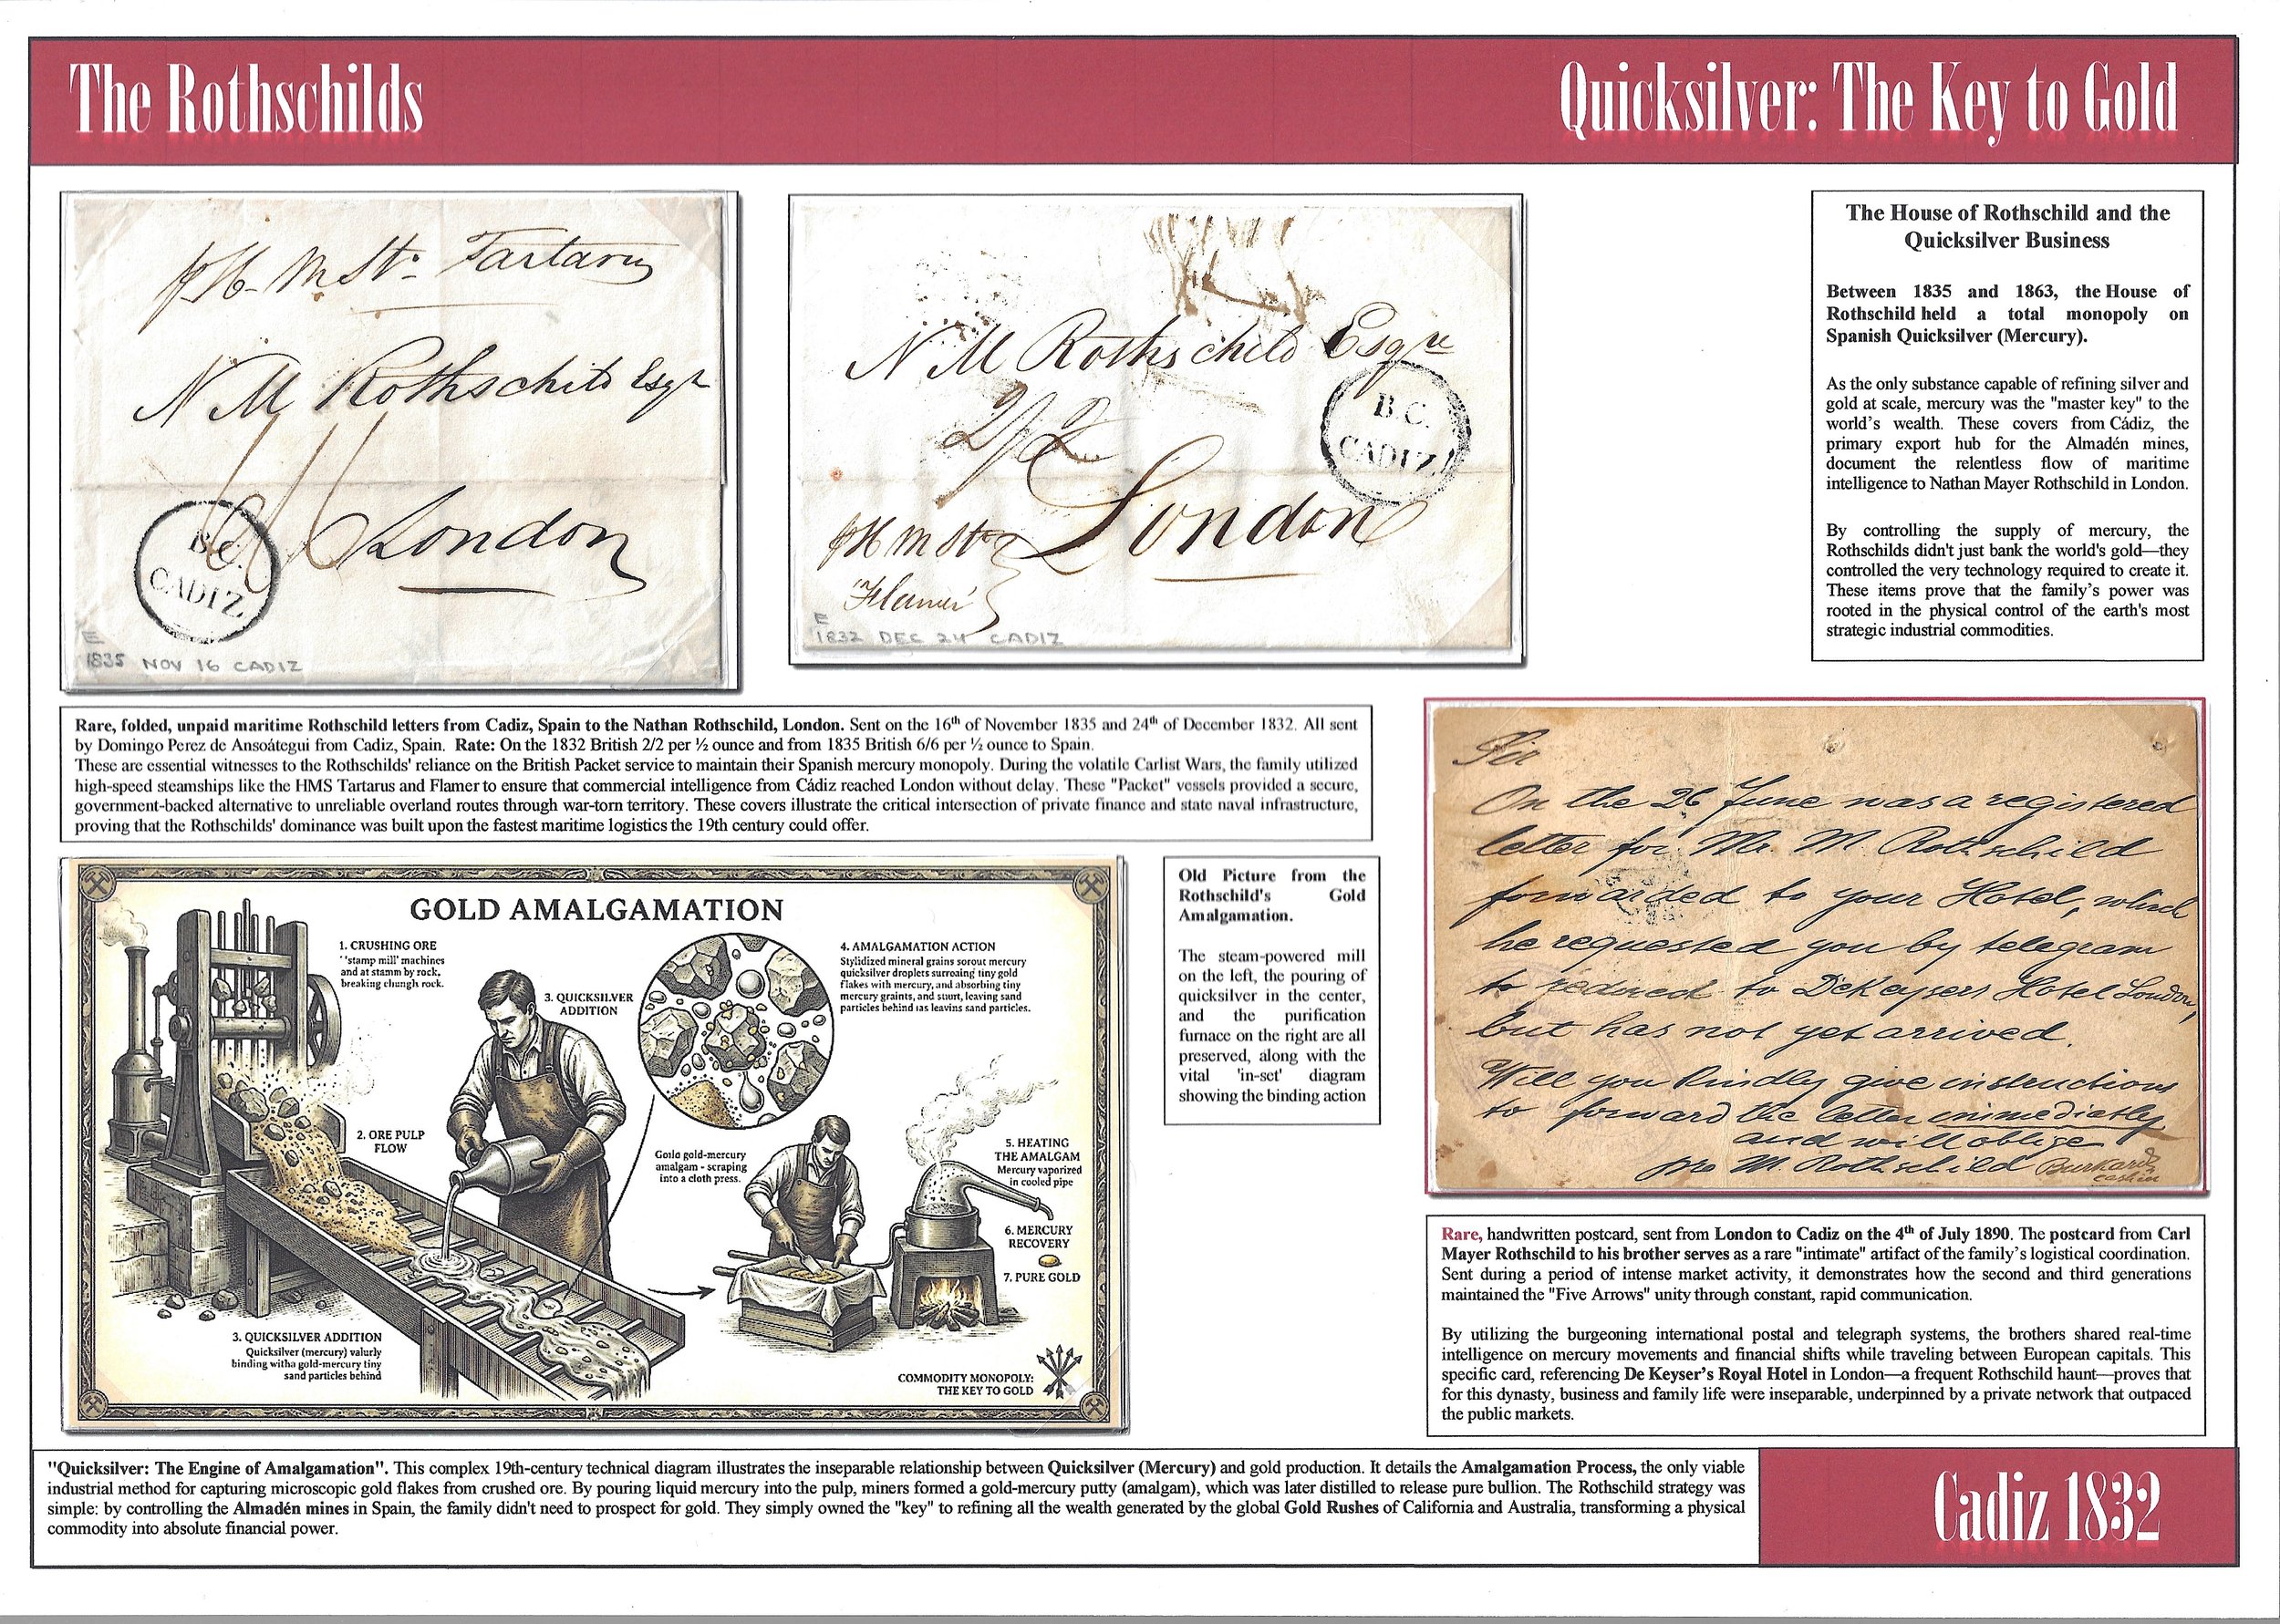 The Rothschilds
Quicksilver: The Key to Gold
N M Rothschild Esqr
London
B.C.
CADIZ.
E
1835 NOV 16 CADIZ
N M Rothschild Esqre
B.C.
CADIZ
London
E
1832 DEC 24 CADIZ
The House of Rothschild and the
Quicksilver Business
Between 1835 and 1863, the House of
Rothschild held a total monopoly on
Spanish Quicksilver (Mercury).
As the only substance capable of refining silver and
gold at scale, mercury was the "master key" to the
world's wealth. These covers from Cádiz, the
primary export hub for the Almadén mines,
document the relentless flow of maritime
intelligence to Nathan Mayer Rothschild in London.
By controlling the supply of mercury, the
Rothschilds didn't just bank the world's gold—they
controlled the very technology required to create it.
These items prove that the family's power was
rooted in the physical control of the earth's most
strategic industrial commodities.
Rare, folded, unpaid maritime Rothschild letters from Cadiz, Spain to the Nathan Rothschild, London. Sent on the 16th of November 1835 and 24th of December 1832. All sent
by Domingo Perez de Ansoátegui from Cadiz, Spain. Rate: On the 1832 British 2/2 per ½ ounce and from 1835 British 6/6 per ½ ounce to Spain.
These are essential witnesses to the Rothschilds' reliance on the British Packet service to maintain their Spanish mercury monopoly. During the volatile Carlist Wars, the family utilized
high-speed steamships like the HMS Tartarus and Flamer to ensure that commercial intelligence from Cádiz reached London without delay. These "Packet" vessels provided a secure,
government-backed alternative to unreliable overland routes through war-torn territory. These covers illustrate the critical intersection of private finance and state naval infrastructure,
proving that the Rothschilds' dominance was built upon the fastest maritime logistics the 19th century could offer.
GOLD AMALGAMATION
1. CRUSHING ORE
'stamp mill' machines
and at stamm by rock,
breaking chungh rock.
3. QUICKSILVER
ADDITION
4. AMALGAMATION ACTION
Stylidized mineral grains sorout mercury
quicksilver droplets surroaing tiny gold
flakes with mercury, and absorbing tiny
mercury graints, and stuirt, leaving sand
particles behind ias leavins sand particles.
2. ORE PULP
FLOW
Goıla gold-mercury
amalgam - scraping
into a cloth press.
5. HEATING
THE AMALGAM
Mercury vaporized
in cooled pipe
6. MERCURY
RECOVERY
7. PURE GOLD
3. QUICKSILVER ADDITION
Quicksilver (mercury) valurly
binding witha gold-mercury tiny
sand particles behind
COMMODITY MONOPOLY:
THE KEY TO GOLD
Old Picture from the
Rothschild's Gold
Amalgamation.
The steam-powered mill
on the left, the pouring of
quicksilver in the center,
and the purification
furnace on the right are all
preserved, along with the
vital 'in-set' diagram
showing the binding action
Sir
On the 26 June was a registered
letter for Mr. M. Rothschild
forwarded to your Hotel, which
he requested you by telegram
to redirect to DeKeysers Hotel London,
but has not yet arrived.
Will you kindly give instructions
to forward the letter immediately
and will oblige
pro M. Rothschild
Rare, handwritten postcard, sent from London to Cadiz on the 4th of July 1890. The postcard from Carl
Mayer Rothschild to his brother serves as a rare "intimate" artifact of the family's logistical coordination.
Sent during a period of intense market activity, it demonstrates how the second and third generations
maintained the "Five Arrows" unity through constant, rapid communication.
By utilizing the burgeoning international postal and telegraph systems, the brothers shared real-time
intelligence on mercury movements and financial shifts while traveling between European capitals. This
specific card, referencing De Keyser's Royal Hotel in London—a frequent Rothschild haunt—proves that
for this dynasty, business and family life were inseparable, underpinned by a private network that outpaced
the public markets.
"Quicksilver: The Engine of Amalgamation". This complex 19th-century technical diagram illustrates the inseparable relationship between Quicksilver (Mercury) and gold production. It details the Amalgamation Process, the only viable
industrial method for capturing microscopic gold flakes from crushed ore. By pouring liquid mercury into the pulp, miners formed a gold-mercury putty (amalgam), which was later distilled to release pure bullion. The Rothschild strategy was
simple: by controlling the Almadén mines in Spain, the family didn't need to prospect for gold. They simply owned the "key" to refining all the wealth generated by the global Gold Rushes of California and Australia, transforming a physical
commodity into absolute financial power.
Cadiz 1832